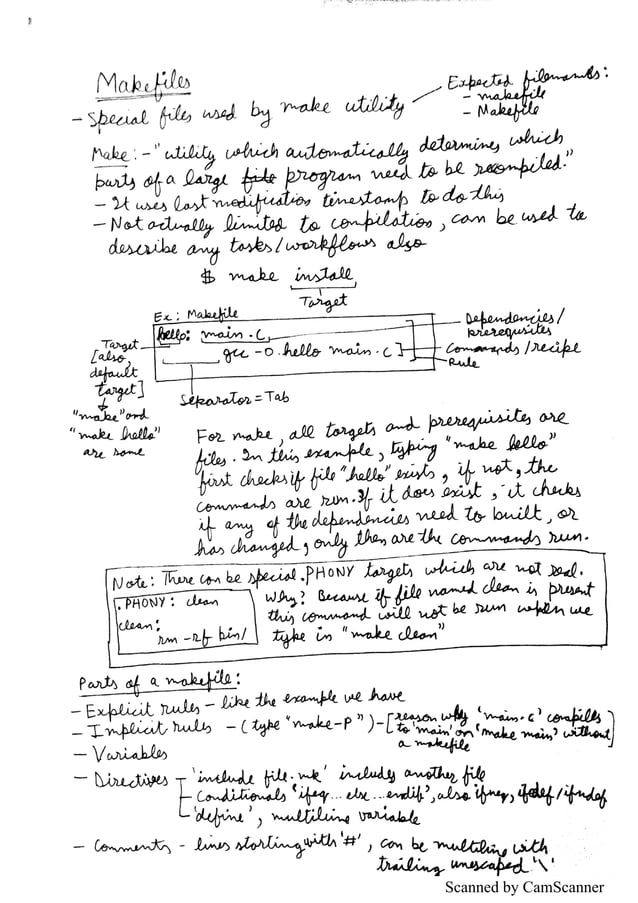 Makefiles
- Special files used by make utility
Expected filenames:
- makefile
- Makefile
Make:- "utility which automatically determines which
parts of a large program need to be recompiled."
- It uses last modification timestamp to do this
- Not actually limited to compilation, can be used to
describe any tasks/workflows also
$ make install
Target
Ex: Makefile
hello: main.c
gcc -o hello main.c
Dependencies/
prerequisites
Commands/recipe
Rule
Target
[also,
default
target]
"make" and
"make hello"
are same
Separator = Tab
For make, all targets and prerequisites are
files. In this example, typing "make hello"
first checks if file "hello" exists, if not, the
commands are run. If it does exist, it checks
if any of the dependencies need to built, or
has changed, only then are the commands run.
Note: There can be special .PHONY targets which are not real.
.PHONY: clean
clean:
rm -rf bin/
Why? Because if file named clean is present
this command will not be run when we
type in "make clean"
Parts of a makefile:
- Explicit rules - like the example we have
- Implicit rules - (type "make -p") - [reason why 'main.c' compiles
to 'main' on 'make main' without
a makefile]
- Variables
- Directives - 'include file.mk' includes another file
- Conditionals 'ifeq...else...endif', also ifneq, ifdef/ifndef
- 'define', multiline variable
- Comments - lines starting with '#', can be multiline with
trailing unescaped '\'
Scanned by CamScanner